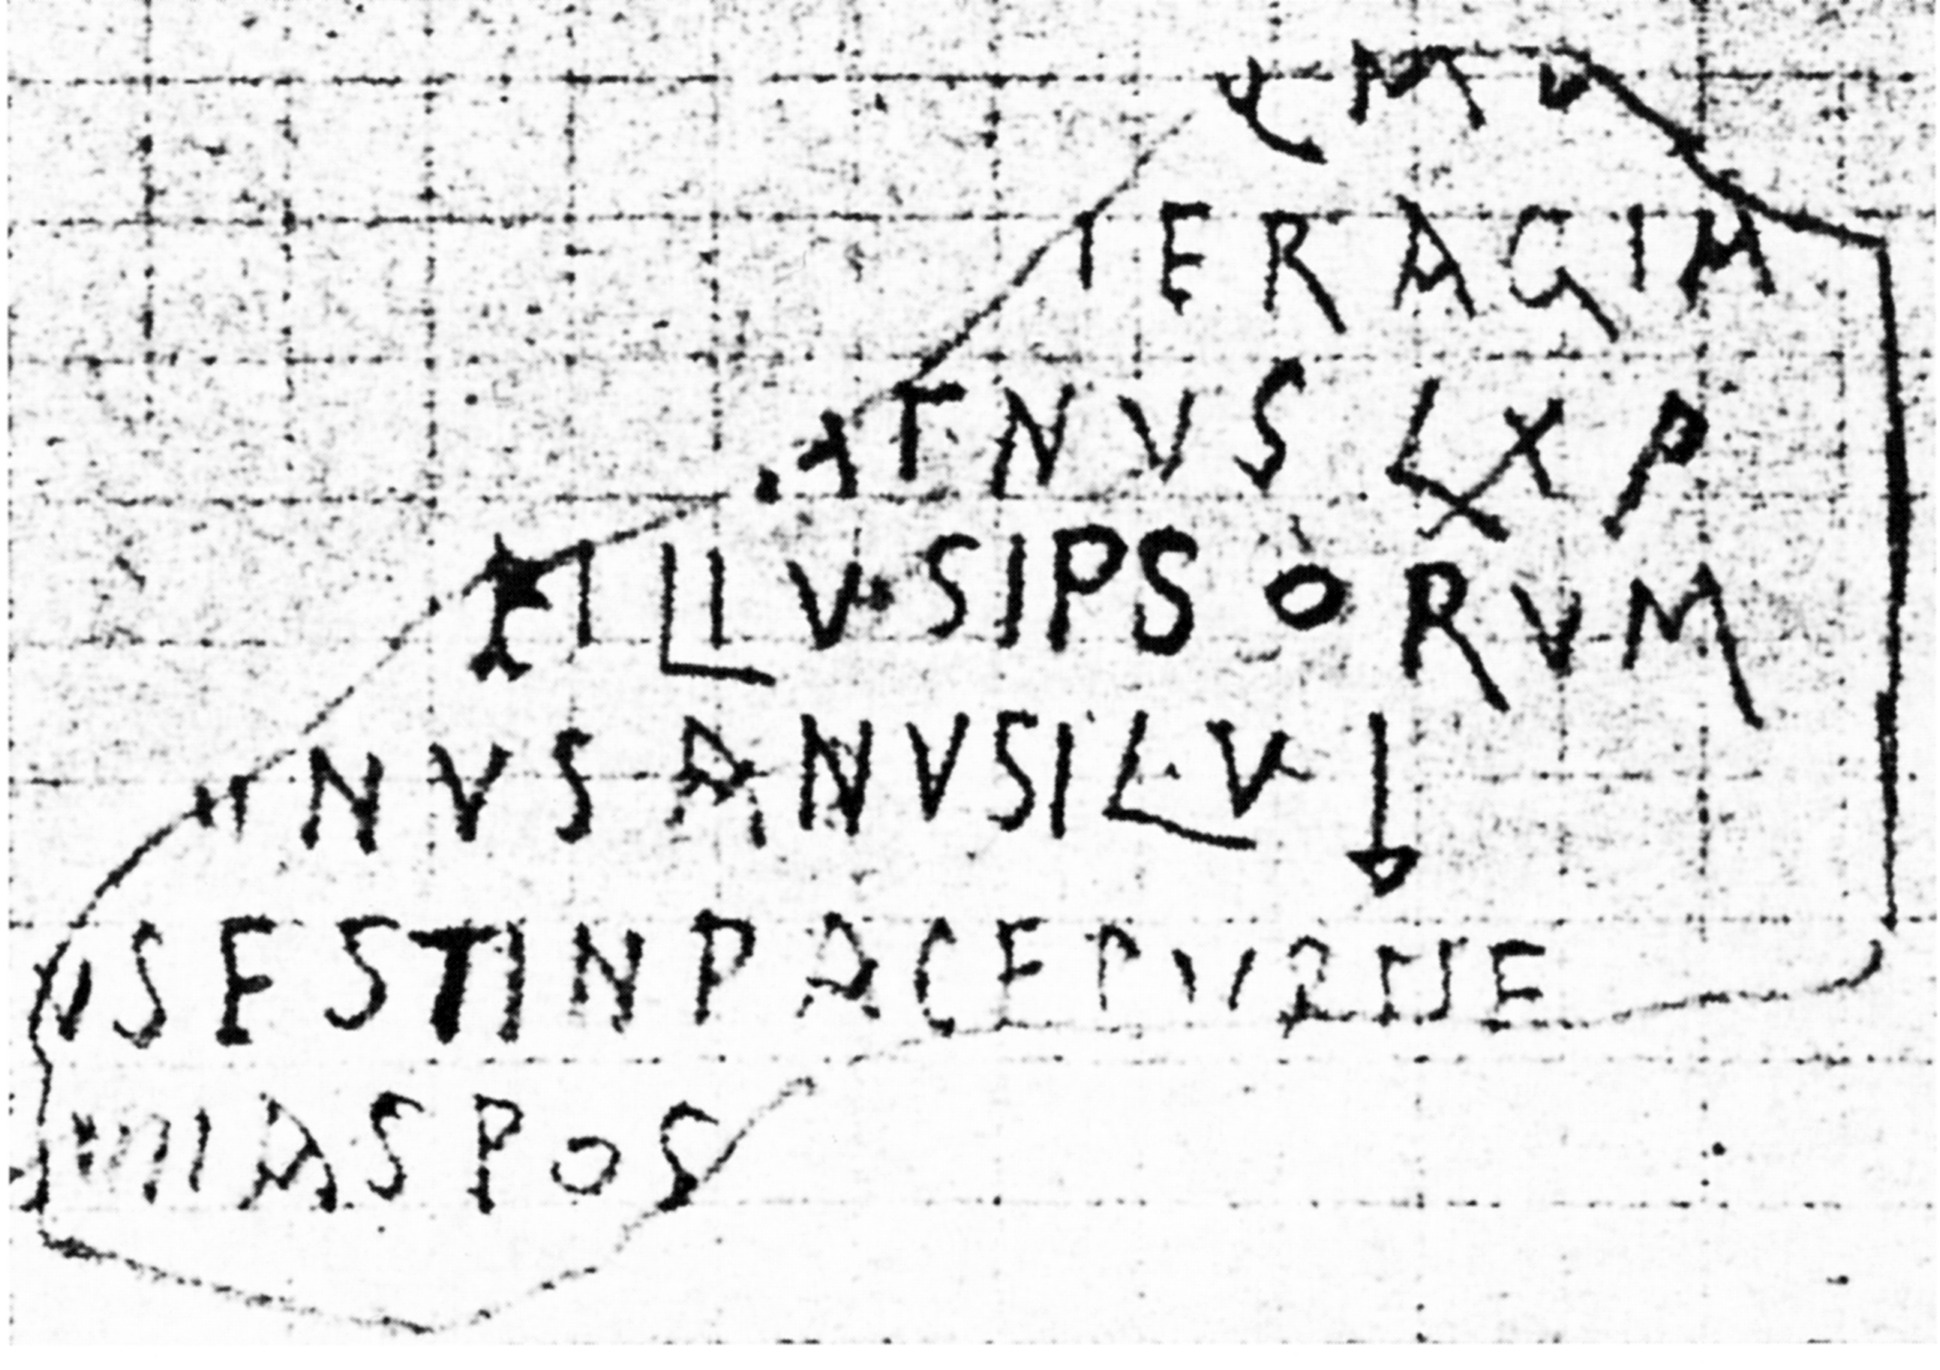 L M V
TERAGIM
ATNVS LXP
FILIVSIPSORVM
NVSANVSILVI
VSESTINPACEPVRIIE
MIASPOS